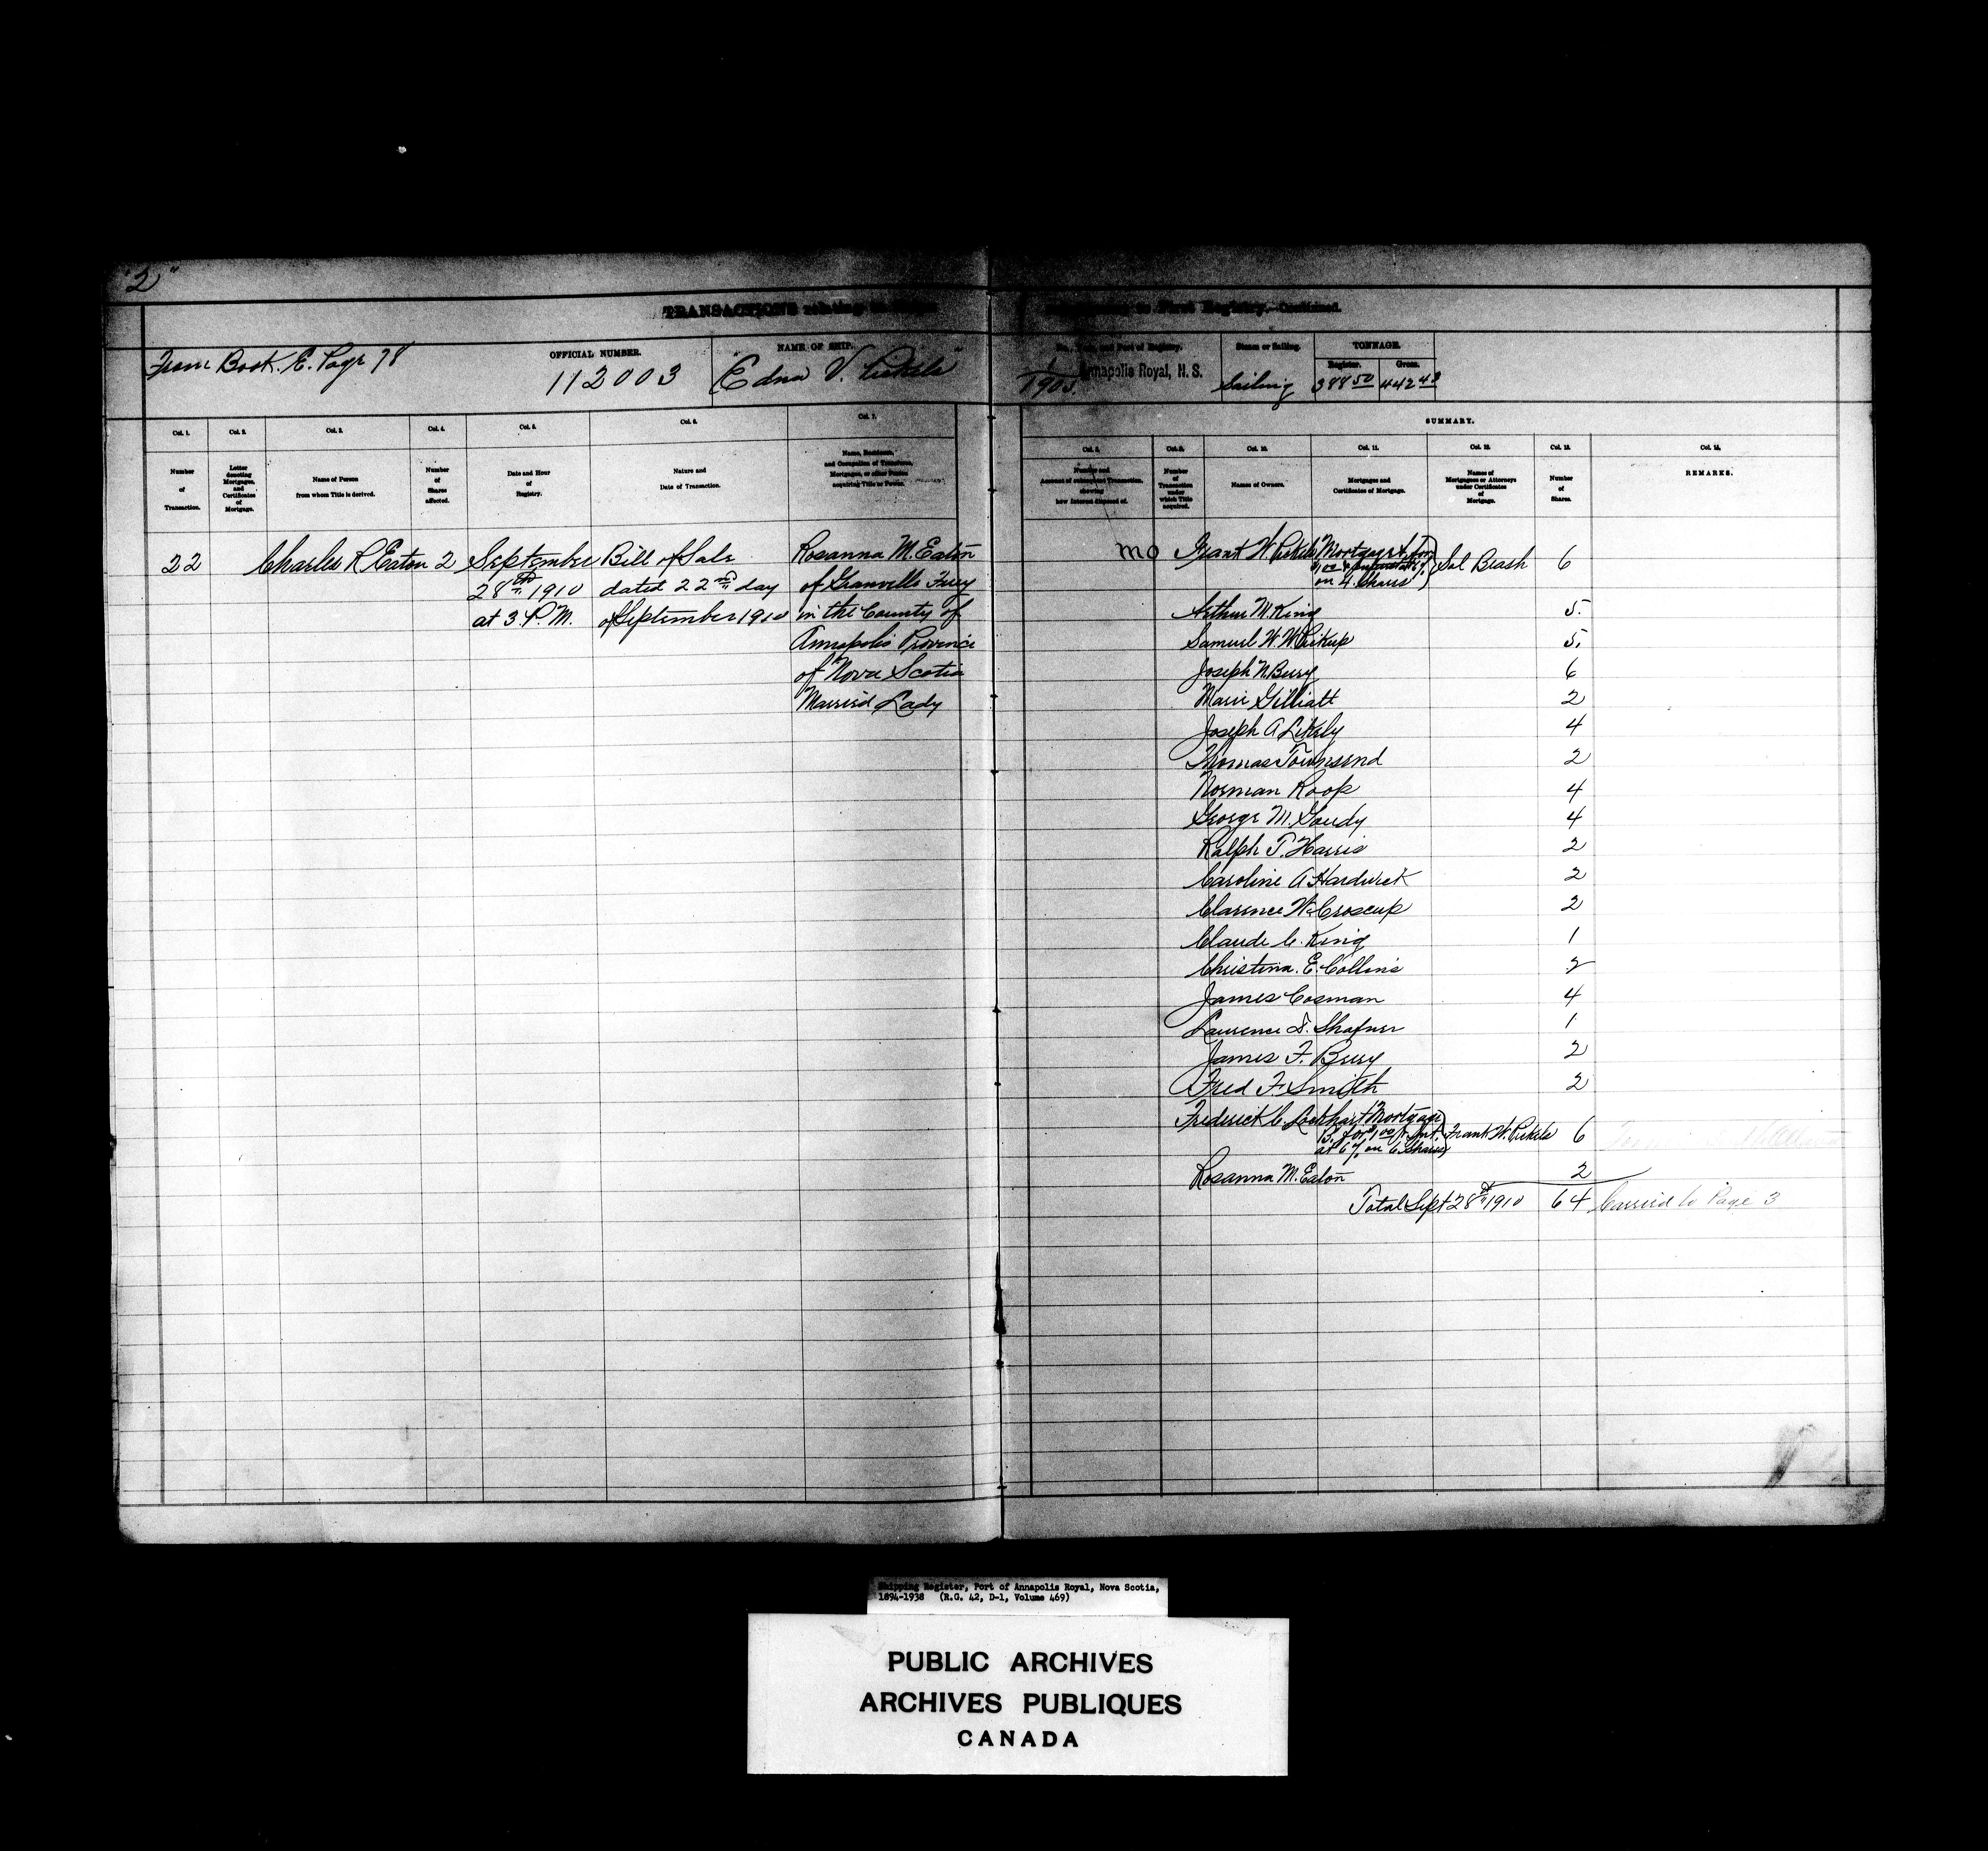 "2"
TRANSACTIONS
to First Registry.—Continued.
From Book. E. Page 78
OFFICIAL NUMBER.
112003
NAME OF SHIP.
"Edna V. Pickels"
and Port of Registry.
1/1905. Annapolis Royal, N. S.
Steam or Sailing.
Sailing
TONNAGE.
Register. Gross.
388 50 442 43
SUMMARY.
Col. 1. Col. 2. Col. 3. Col. 4. Col. 5. Col. 6. Col. 7.
Number of Transaction.
Letter denoting Mortgages, and Certificates of Mortgage.
Name of Person from whom Title is derived.
Number of Shares affected.
Date and Hour of Registry.
Nature and Date of Transaction.
Name, Residence, and Occupation of Transferee, Mortgagee, or other Person acquiring Title or Power.
Col. 8. Col. 9. Col. 10. Col. 11. Col. 12. Col. 13. Col. 14.
Number and Account of subsequent Transaction, showing how Interest disposed of.
Number of Transaction under which Title acquired.
Names of Owners.
Mortgages and Certificates of Mortgage.
Names of Mortgagees or Attorneys under Certificates of Mortgage.
Number of Shares.
REMARKS.
22 Charles R Eaton 2 September Bill of Sale Rosanna M. Eaton
28th 1910 dated 22nd day of Granville Ferry
at 3. P. M. of September 1910 in the County of
Annapolis Province
of Nova Scotia
Married Lady
mo Frank W. Pickels Mortgage A. for Sol Brash 6
on 4 Shares
Arthur M. King 5.
Samuel W. W. Pickup 5.
Joseph N. Bury 6
Marie Gilliatt 2
Joseph A Likely 4
Thomas Townsend 2
Norman Roop 4
George M. Goudy 4
Ralph T. Harris 2
Caroline A Hardwick 2
Clarence W. Croscup 2
Claude C. King 1
Christina. E. Collins 2
James Cosman 4
Laurence D. Shafner 1
James F. Bury 2
Fred F Smith 2
Frederick C. Lockhart Mortgage
B. for $1.00 & Int. Frank W. Pickels 6
at 6% on 6 Shares
Rosanna M. Eaton 2
Total Sept 28th 1910 64 Carried to Page 3
Shipping Register, Port of Annapolis Royal, Nova Scotia,
1894-1938 (R.G. 42, D-1, Volume 469)
PUBLIC ARCHIVES
ARCHIVES PUBLIQUES
CANADA